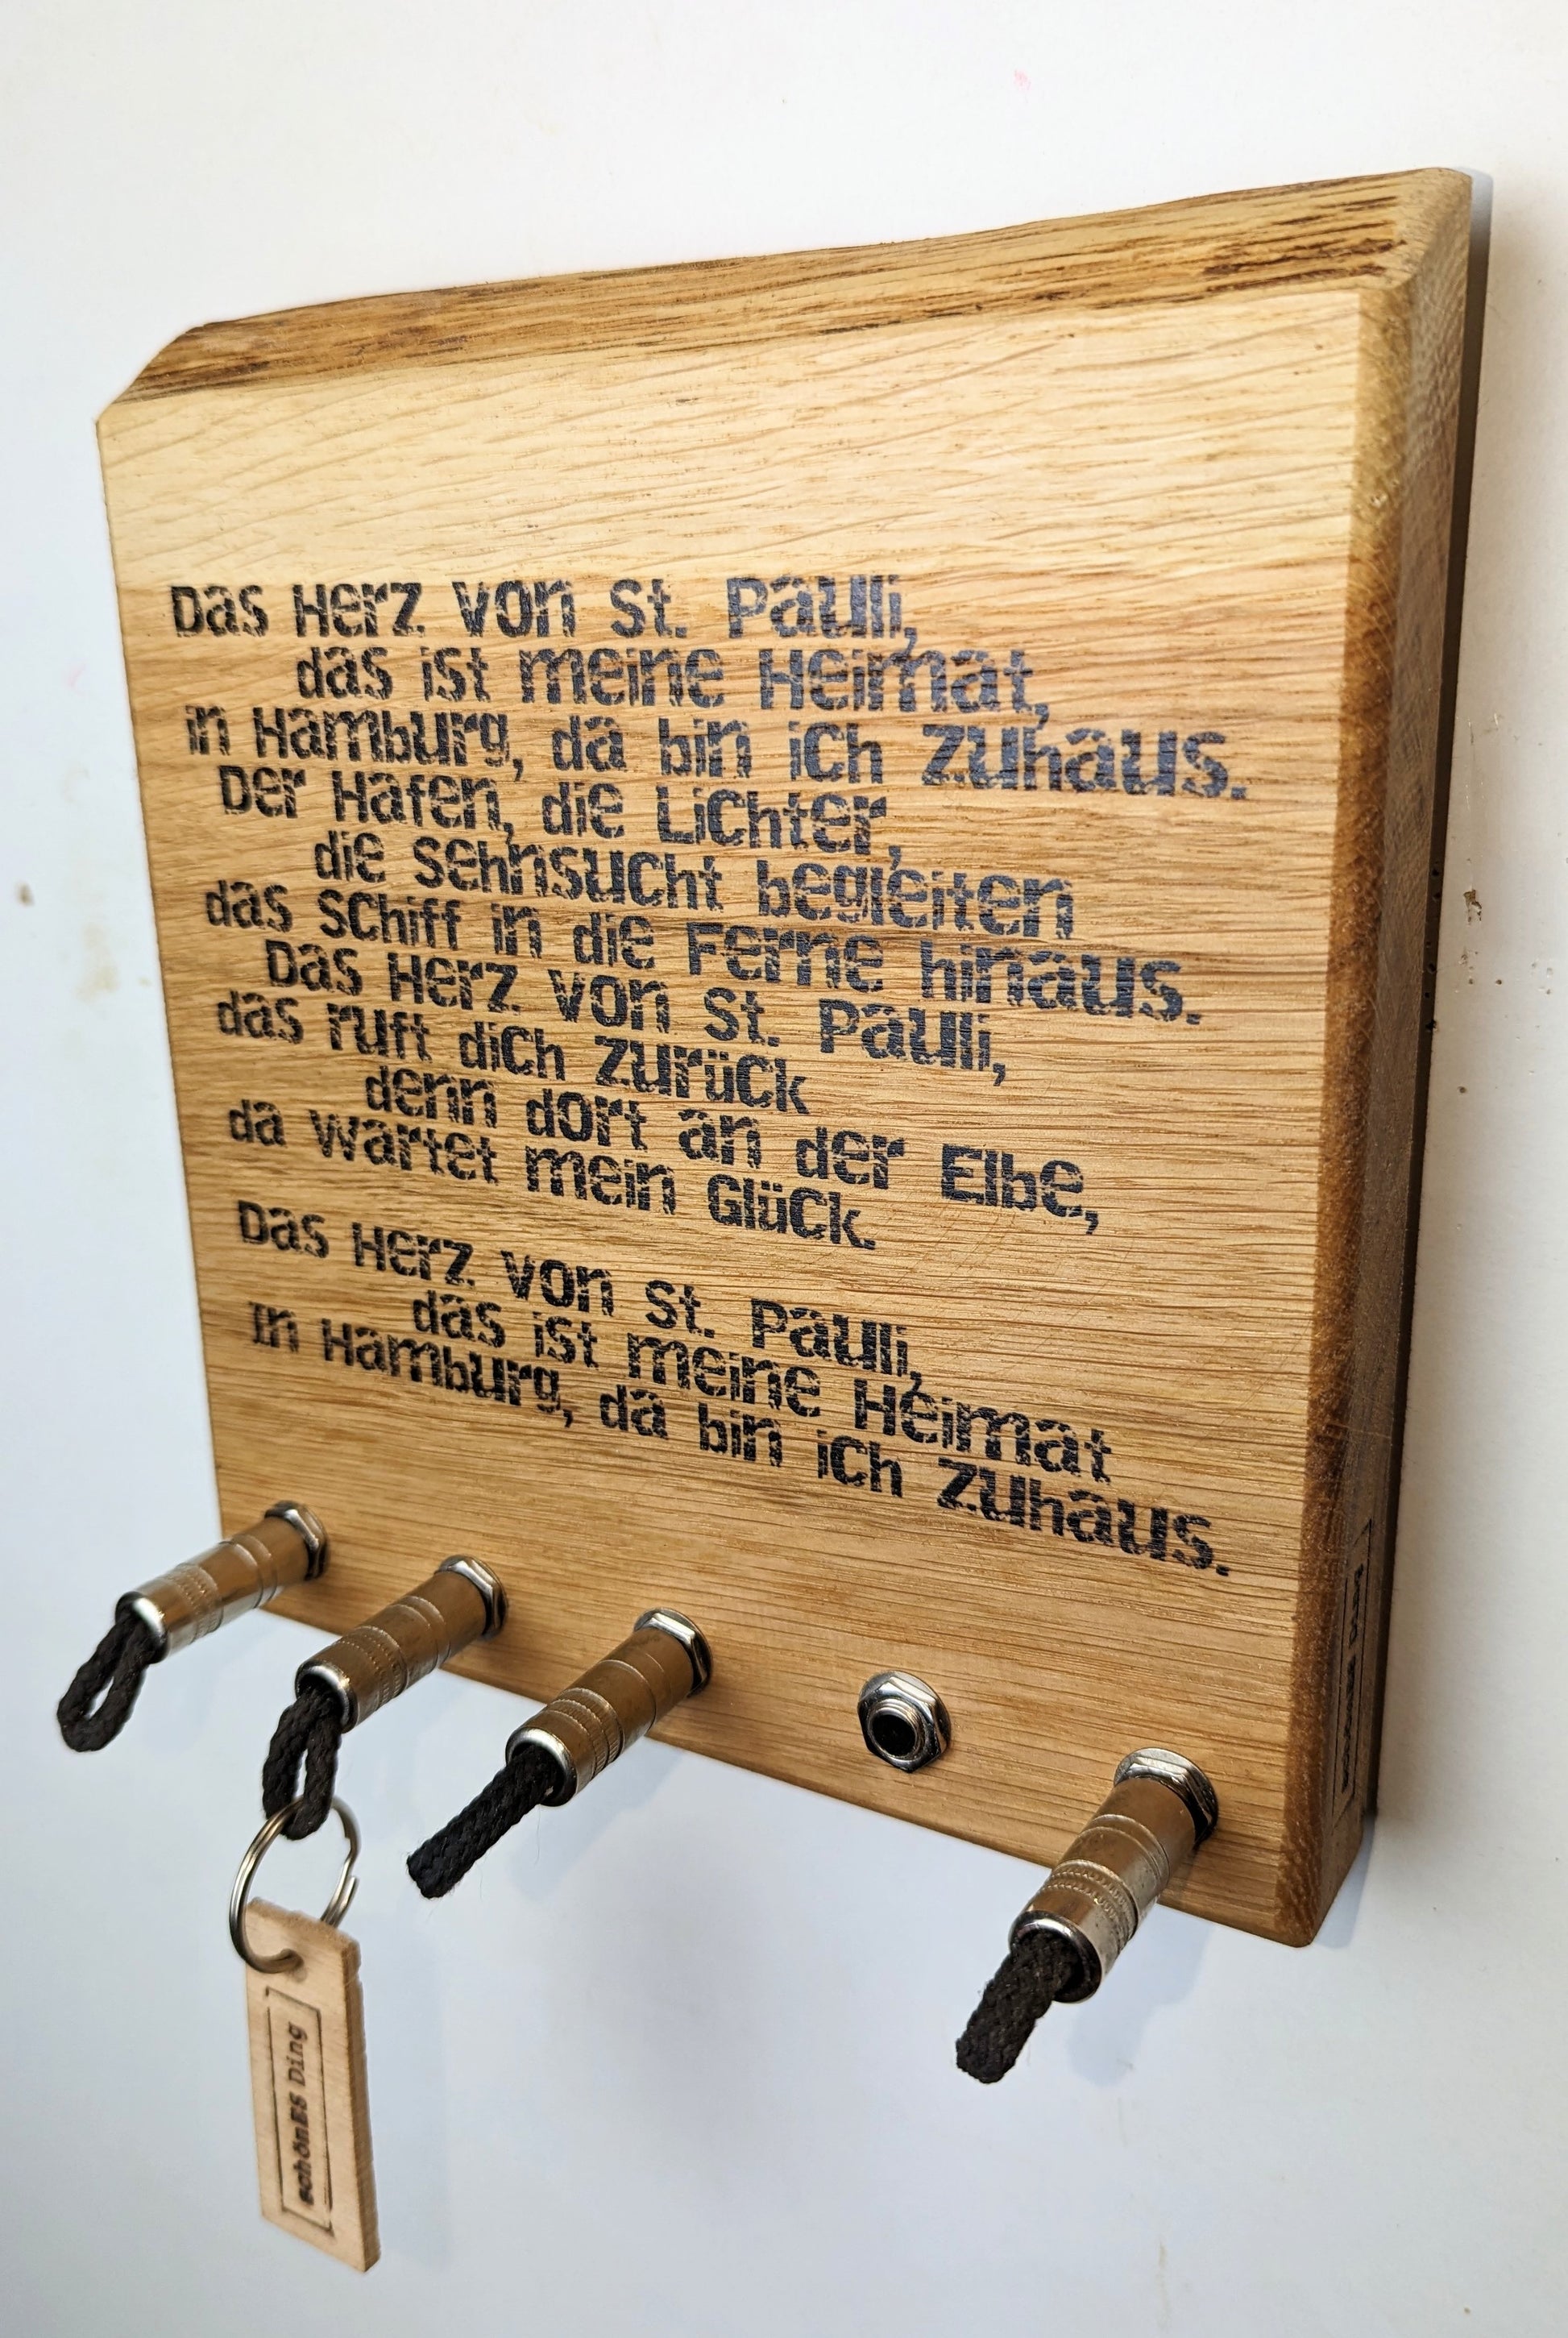 Das Herz von St. Pauli,
das ist meine Heimat,
in Hamburg, da bin ich zuhaus.
Der Hafen, die Lichter,
die Sehnsucht begleiten
das Schiff in die Ferne hinaus.
Das Herz von St. Pauli,
das ruft dich zurück
denn dort an der Elbe,
da wartet mein Glück.
Das Herz von St. Pauli,
das ist meine Heimat
In Hamburg, da bin ich zuhaus.
schönES Ding
schönES Ding